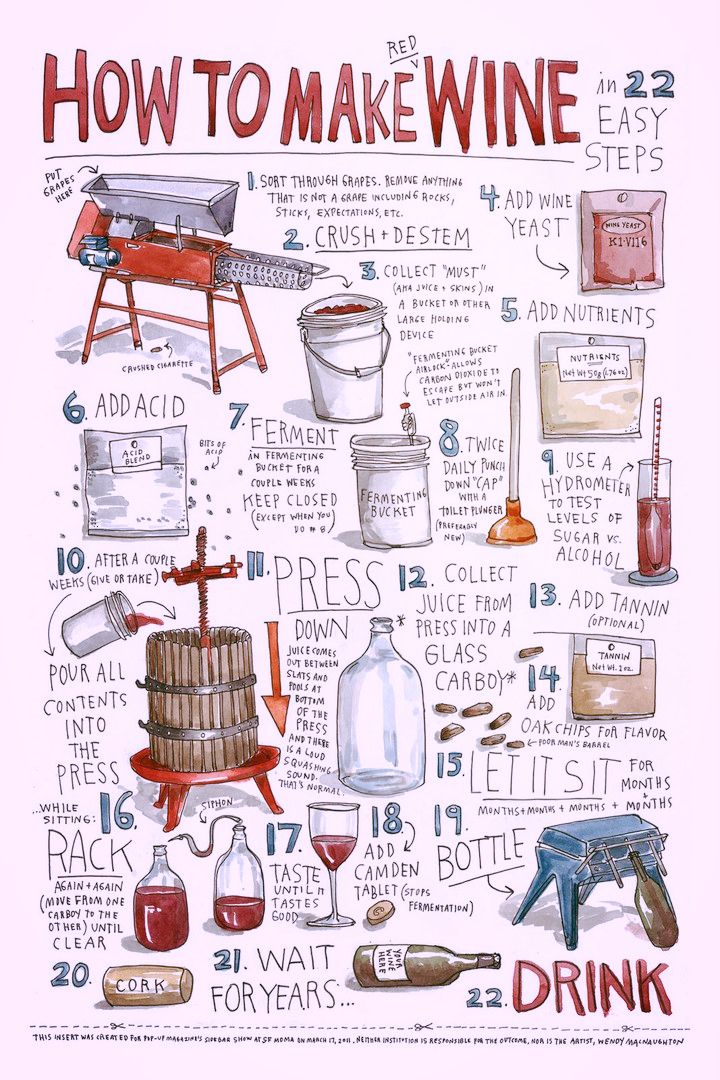 RED
HOW TO MAKE WINE
in 22
EASY
STEPS
PUT
GRAPES
HERE
1. SORT THROUGH GRAPES. REMOVE ANYTHING
THAT IS NOT A GRAPE INCLUDING ROCKS,
STICKS, EXPECTATIONS, ETC.
2. CRUSH + DESTEM
CRUSHED CIGARETTE
3. COLLECT "MUST"
(AKA JUICE + SKINS) IN
A BUCKET OR OTHER
LARGE HOLDING
DEVICE
4. ADD WINE
YEAST
WINE YEAST
K1-V1116
5. ADD NUTRIENTS
NUTRIENTS
Net Wt 50g (1.76 oz)
6. ADD ACID
ACID
BLEND
BITS OF
ACID
7. FERMENT
IN FERMENTING
BUCKET FOR A
COUPLE WEEKS
KEEP CLOSED
(EXCEPT WHEN YOU
DO # 8)
"FERMENTING BUCKET
AIRLOCK" ALLOWS
CARBON DIOXIDE TO
ESCAPE BUT WON'T
LET OUTSIDE AIR IN.
FERMENTING
BUCKET
8. TWICE
DAILY PUNCH
DOWN "CAP"
WITH A
TOILET PLUNGER
(PREFERABLY
NEW)
9. USE A
HYDROMETER
TO TEST
LEVELS OF
SUGAR VS.
ALCOHOL
10. AFTER A COUPLE
WEEKS (GIVE OR TAKE)
POUR ALL
CONTENTS
INTO
THE
PRESS
11. PRESS
DOWN
JUICE COMES
OUT BETWEEN
SLATS AND
POOLS AT
BOTTOM
OF THE
PRESS
AND THERE
IS A LOUD
SQUASHING
SOUND.
THAT'S NORMAL.
12. COLLECT
JUICE FROM
PRESS INTO A
GLASS
CARBOY*
*
13. ADD TANNIN
(OPTIONAL)
TANNIN
Net Wt. 1 oz.
14.
ADD
OAK CHIPS FOR FLAVOR
POOR MAN'S BARREL
15. LET IT SIT FOR
MONTHS
+
MONTHS + MONTHS + MONTHS + MONTHS
...WHILE
SITTING: 16.
RACK
AGAIN + AGAIN
(MOVE FROM ONE
CARBOY TO THE
OTHER) UNTIL
CLEAR
SIPHON
17.
TASTE
UNTIL IT
TASTES
GOOD
18.
ADD
CAMDEN
TABLET (STOPS
FERMENTATION)
19.
BOTTLE
20.
CORK
21. WAIT
FOR YEARS...
YOUR
WINE
HERE
22. DRINK
THIS INSERT WAS CREATED FOR POP-UP MAGAZINE'S SIDEBAR SHOW AT SF MOMA ON MARCH 17, 2011. NEITHER INSTITUTION IS RESPONSIBLE FOR THE OUTCOME, NOR IS THE ARTIST, WENDY MACNAUGHTON